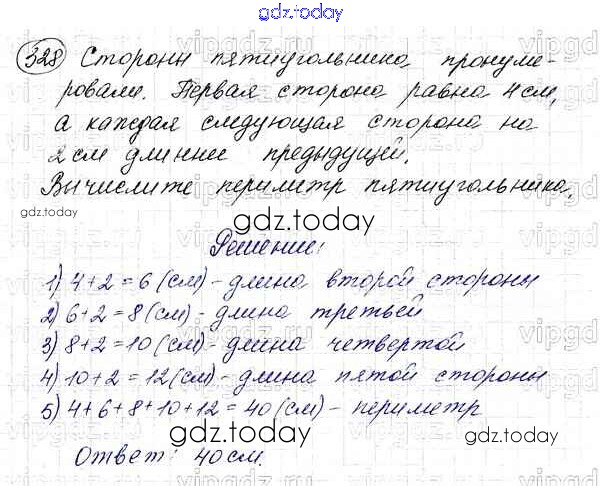 gdz.today
328 Стороны пятиугольника пронуме-
ровали. Первая сторона равна 4 см,
а каждая следующая сторона на
2 см длиннее предыдущей.
Вычислите периметр пятиугольника.
gdz.today
gdz.today
Решение:
1) 4+2=6 (см) - длина второй стороны
2) 6+2=8 (см) - длина третьей
gdz.today
3) 8+2=10 (см) - длина четвертой
4) 10+2=12 (см) - длина пятой стороны
5) 4+6+8+10+12=40 (см) - периметр
gdz.today
Ответ: 40 см.
gdz.today